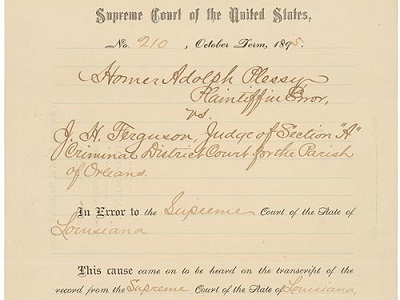 Supreme Court of the United States,
No. 210, October Term, 1895.
Homer Adolph Plessy,
Plaintiff in Error,
vs.
J. H. Ferguson, Judge of Section "A"
Criminal District Court for the Parish
of Orleans.
In Error to the Supreme Court of the State of
Louisiana
This cause came on to be heard on the transcript of the
record from the Supreme Court of the State of Louisiana,